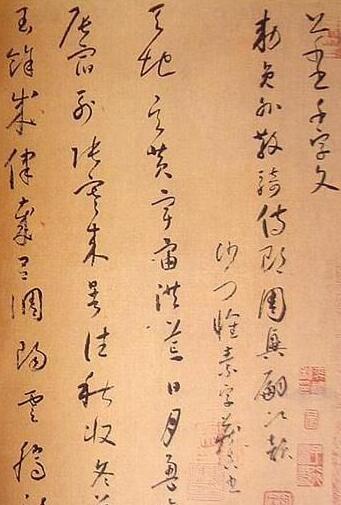 千字文
勅員外散騎侍郎周興嗣次韻
沙門懷素字藏真書
天地玄黃宇宙洪荒日月盈
辰宿列張寒來暑往秋收冬藏
閏餘成律歲呂調陽雲騰